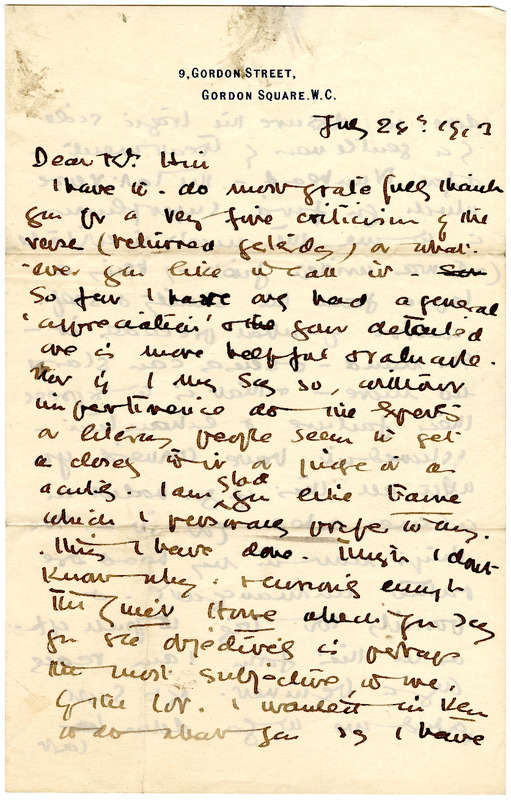 9, GORDON STREET,
GORDON SQUARE. W.C.
July 28th 1913
Dear Mr. Hill
I have to - do most gratefully thank
you for a very fine criticism of the
verse (returned yesterday) or what-
ever you like to call it -
So far I have only had a general
'appreciation' & the your detailed
one is more helpful & valuable.
Nor if I may say so, without
impertinence do the experts
or literary people seem to get
as closely to it or judge it as
acutely. I am glad you like
which I personally prefer to any-
thing I have done. Though I don't
know why. & curiously enough
the Quiet House which you say
you see objectively is perhaps
the most subjective to me,
of the lot. I wanted in Ken
to do what you say I have